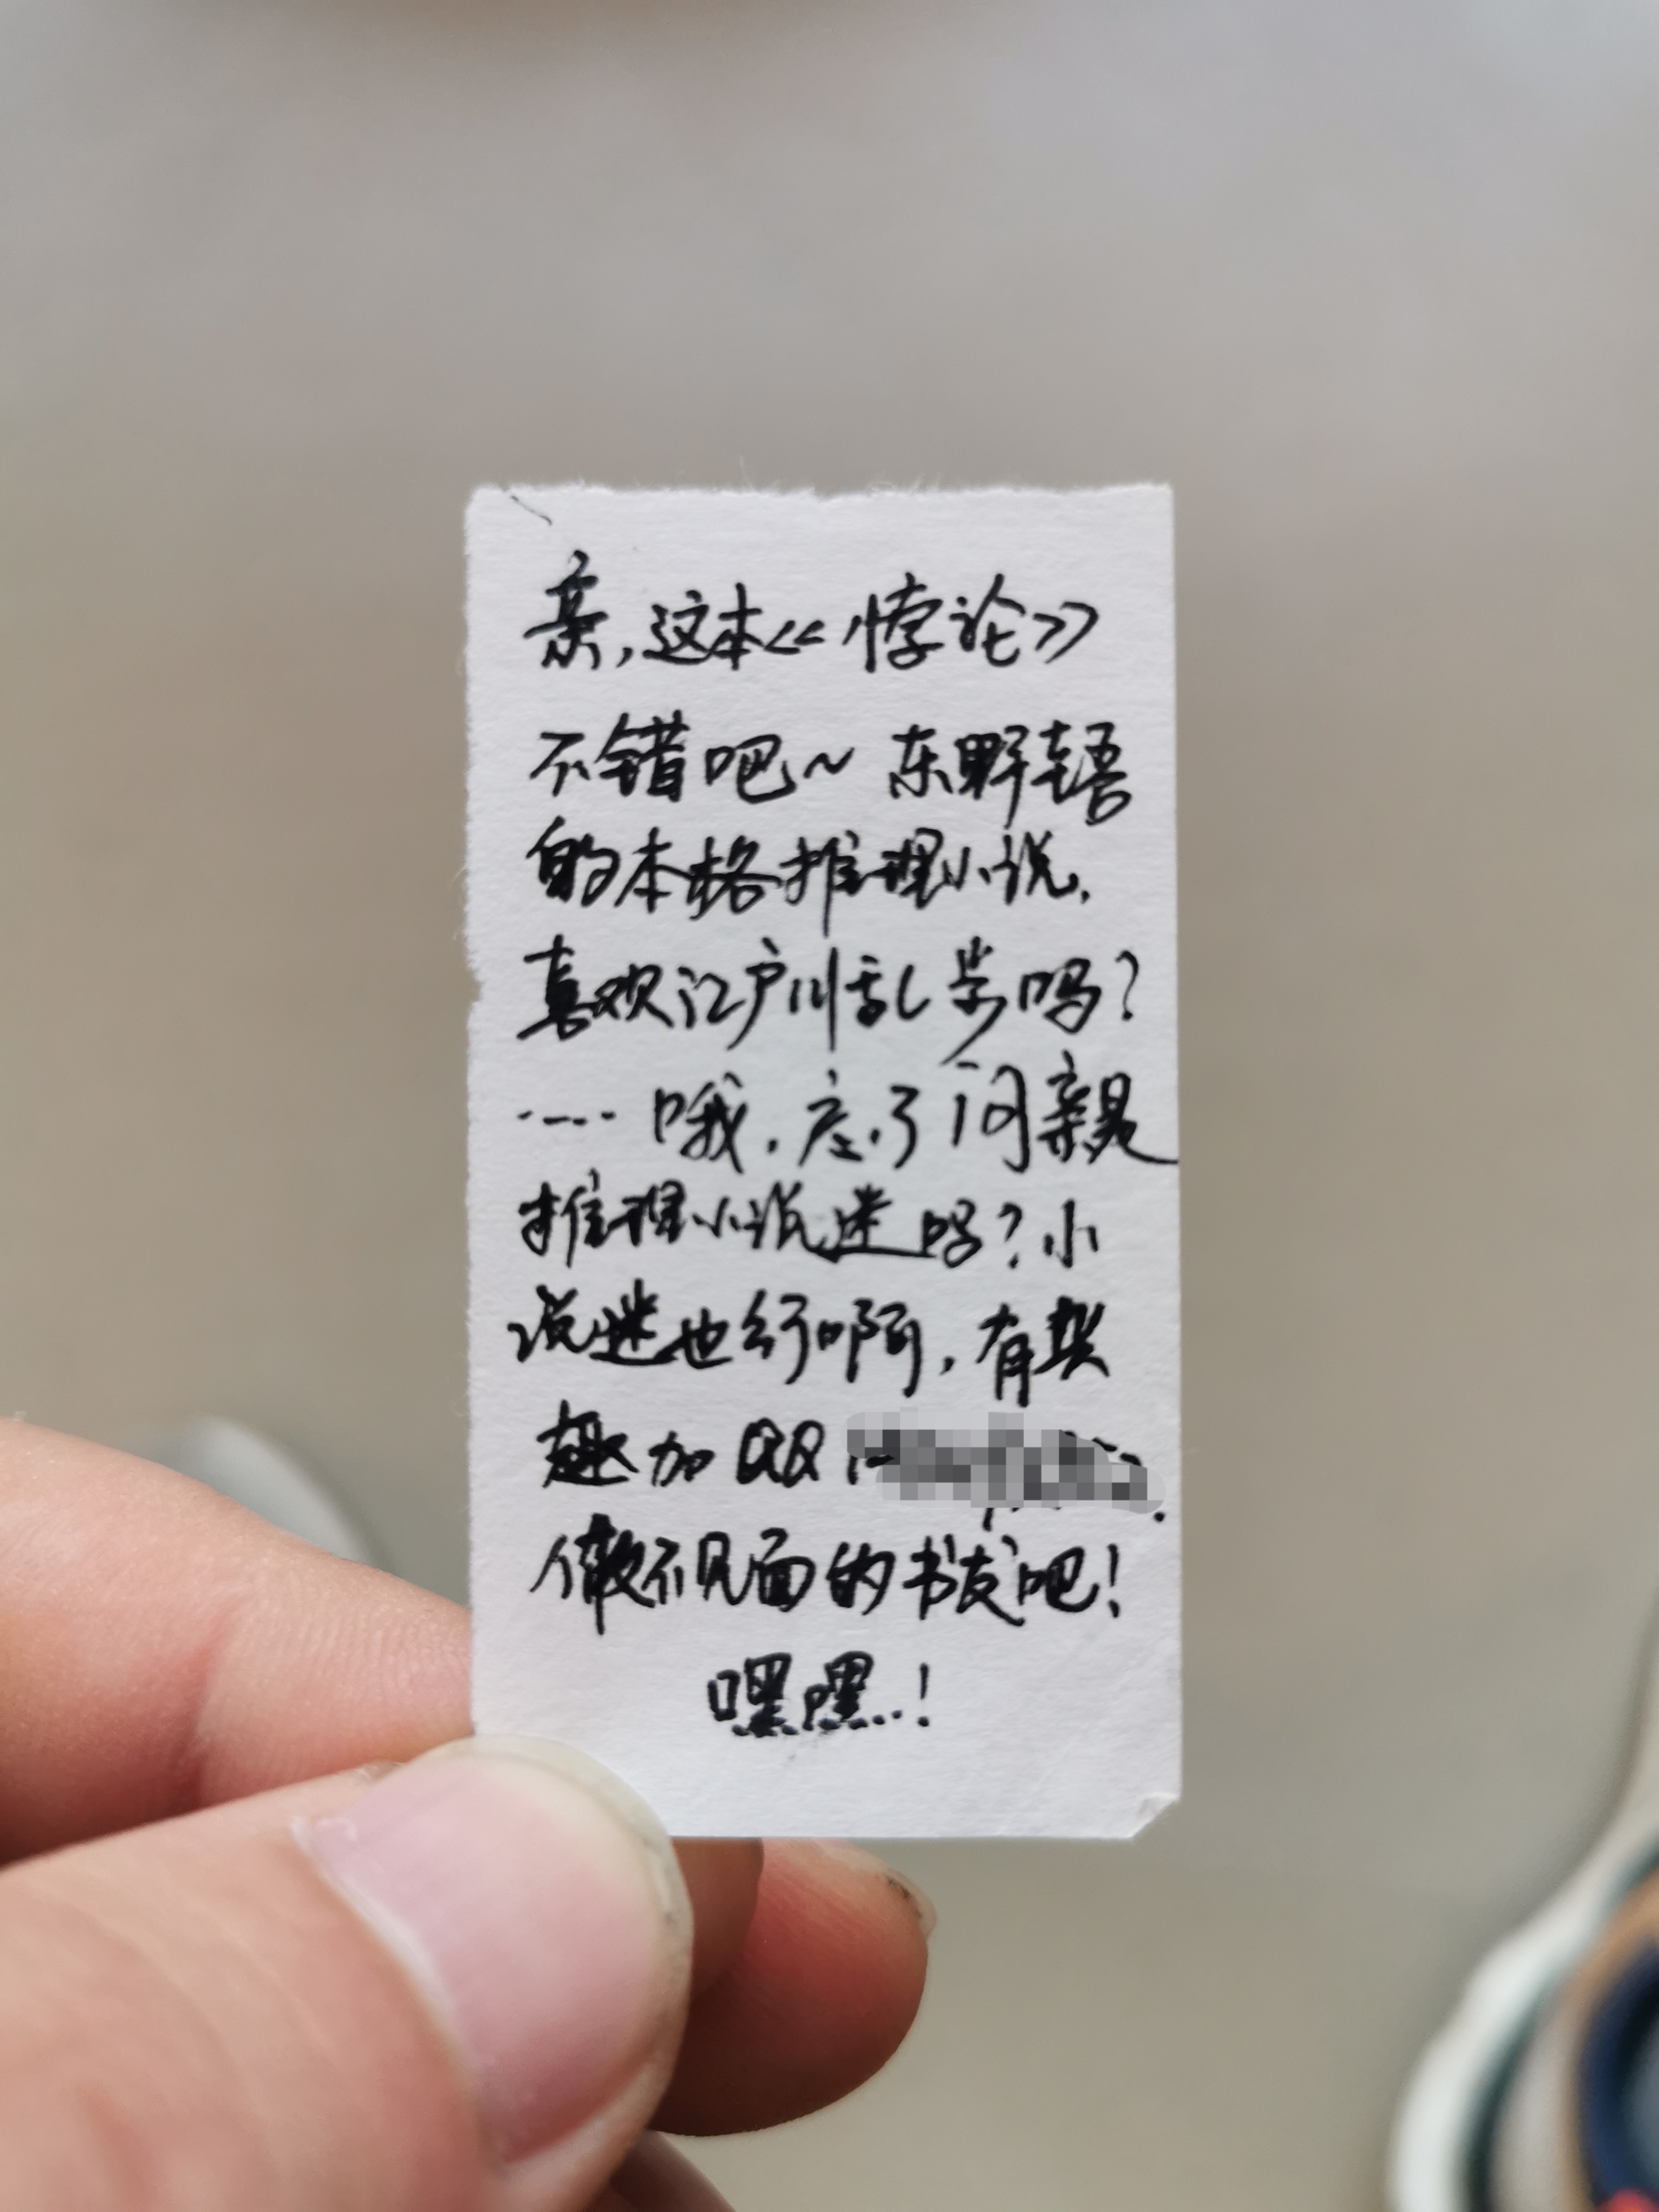 亲,这本《悖论》
不错吧~东野圭吾
的本格推理小说,
喜欢江户川乱步吗?
……哦,忘了问亲是
推理小说迷吗?小
说迷也行啊,有兴
趣加QQ
做不见面的书友吧!
嘿嘿!